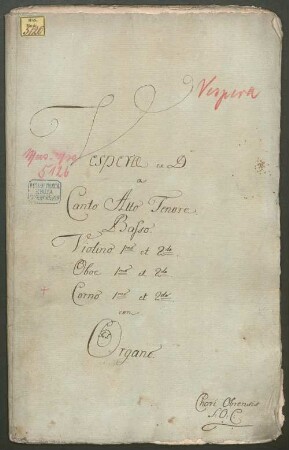 5126
Vespera
Vesperae ex D
Mus. ms.
5126
a
Canto Alto Tenore
Basso
Violino 1mo et 2do
Oboe 1mo et 2do
Corno 1mo et 2do
con
Organo
Chori Obrensis
S.O.C.